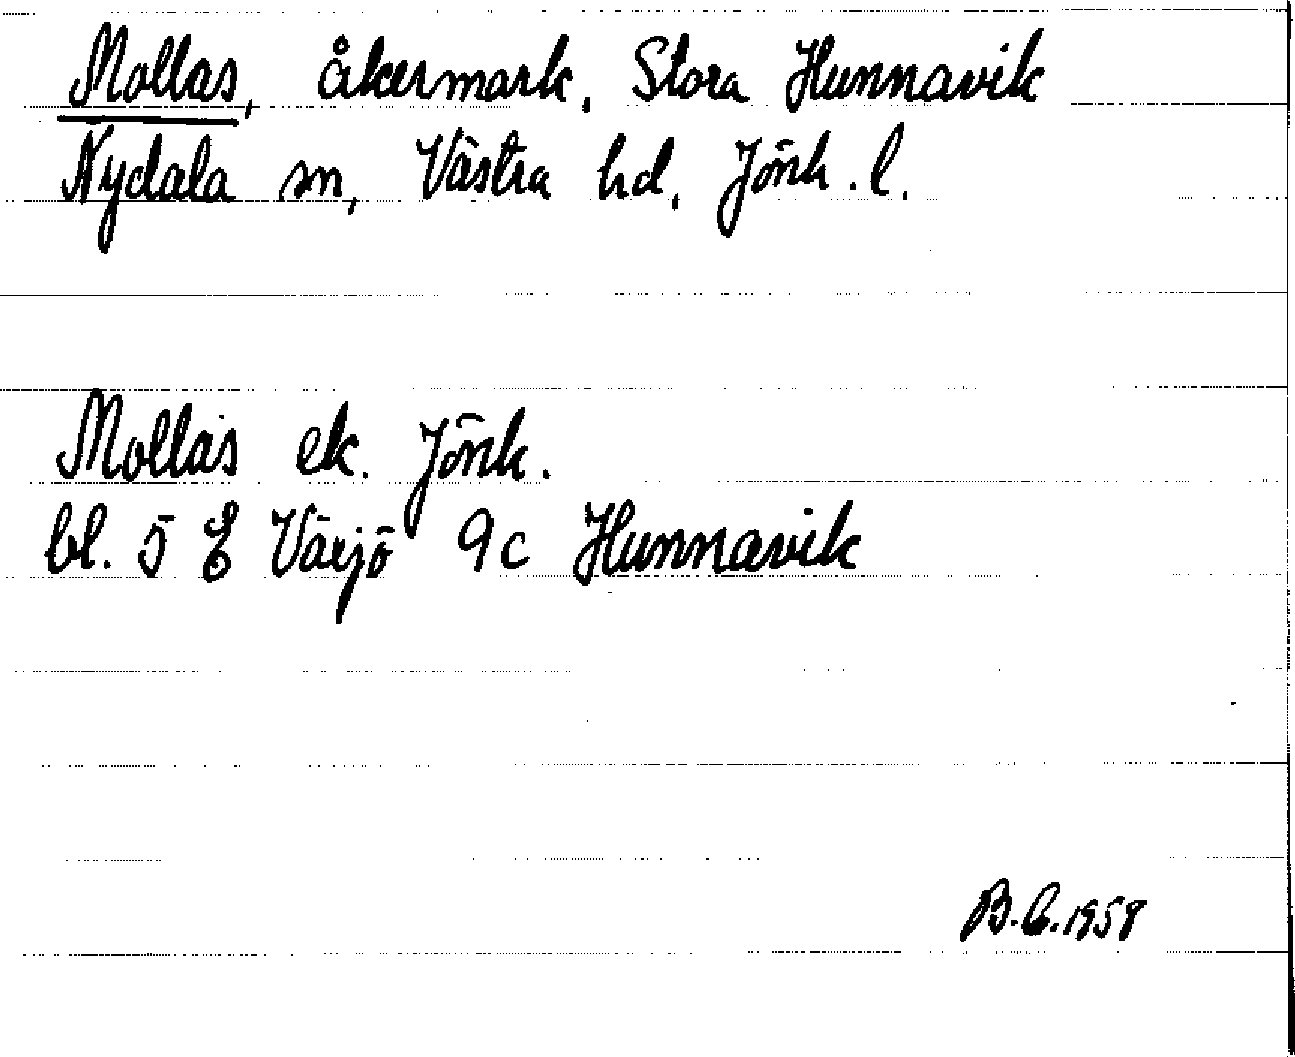 Mollas, åkermark, Stora Hunnavik
Nydala sn, Västra hd, Jönk. l.
Mollas ek. Jönk.
bl. 5 E Växjö 9c Hunnavik
1958